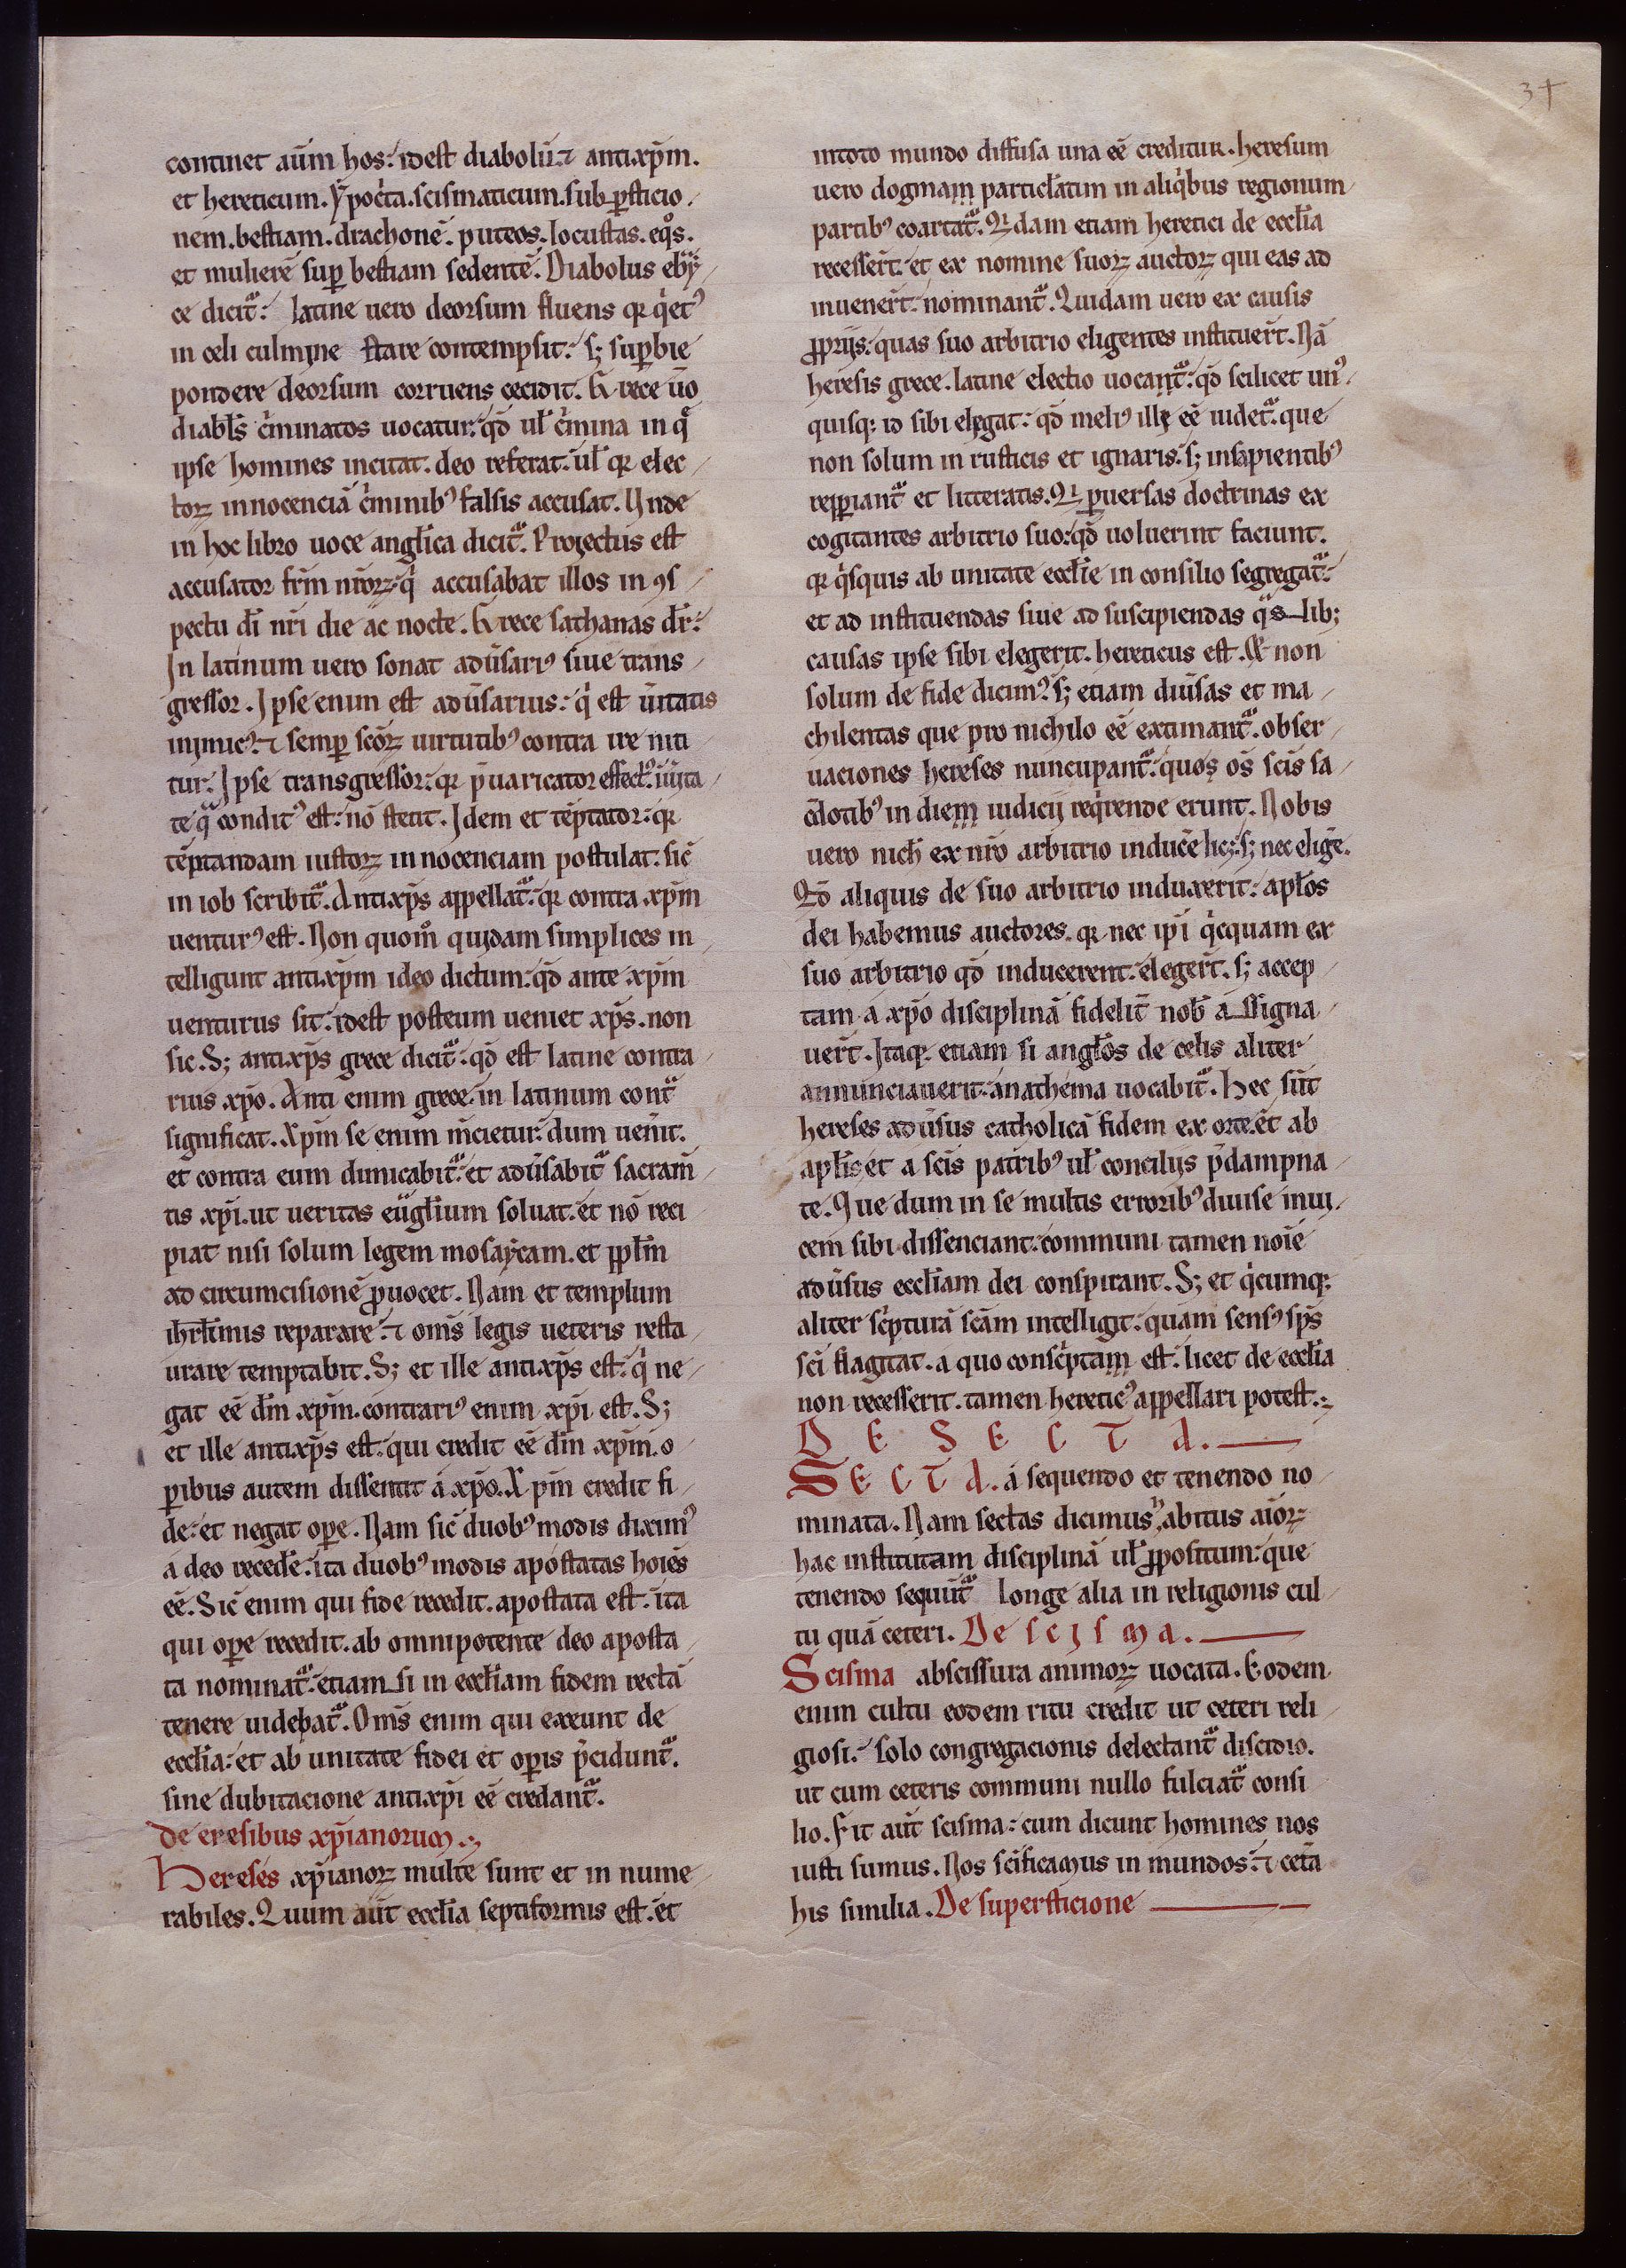 34
continet aūm hos. idest diabolū. ⁊ antixp̄m.
et hereticum. ẏpoc̓ta. scismaticum. sub p̱sticio
nem. bestiam. drachonē. puteos. locustas. eq̊s.
et mulierē sup̱ bestiam sedentē. Diabolus ebẏ
ce dicit᷑. latine uero deorsum fluens qr q̓et᾽
in celi culmine stare contempsit. s; sup̱bie
pondere deorsum corruens cecidit. Grece ūo
diabl̄s c̓minatos uocatur. qd̄ ul̄ c̓mina in q̊
ipse homines incitat. deo referat. ul̄ qr elec
torꝝ innocenciā c̓minib᾽ falsis accusat. Unde
in hoc libro uoce angl̄ica dicit᷑. Proiectus est
accusator fr̄m nr̄orꝝ. q̓ accusabat illos in ꝯs
pectu dī nr̄i die ac nocte. Grece sathanas dr̄.
In latinum uero sonat adūsari᾽ siue trans
gressor. Ipse enim est adūsarius. q̓ est ūitatis
inimic᾽. ⁊ semp̱ scōꝝ uirtutib᾽ contra ire niti
tur. Ipse transgressor. qr p̄uaricator effect᾽. iūita
te q̊ condit᾽ est. nō stetit. Idem et tēptator. qr
tēptandam iustorꝝ innocenciam postulat. sic̄
in iob scribit᷑. Antixp̄s appellat᷑. qr contra xp̄m
uentur᾽ est. Non quom̊ quidam simplices in
telligunt antixp̄m ideo dictum. qd̄ ante xp̄m
uenturus sit. idest posteum ueniet xp̄s. non
sic. S; antixp̄s grece dicit᷑. qd̄ est latine contra
rius xp̄o. Anti enim grece. in latinum cont᷑
significat. Xp̄m se enim m̄cietur. dum uen̄it.
et contra eum dimicabit᷑. et adūsabit᷑ sacram̄
tis xp̄i. ut ueritas eūgl̄ium soluat. et nō reci
piat nisi solum legem mosaẏcam. et ppl̄m
ad circumcisionē ꝓuocet. Nam et templum
ih̄rl̄imis reparare. ⁊ om̄s legis ueteris resta
urare temptabit. S; et ille antixp̄s est. q̓ ne
gat eē dn̄m xp̄m. contrari᾽ enim xp̄i est. S;
et ille antixp̄s est. qui credit eē dn̄m xp̄m. o
p̱ibus autem dissentit a xp̄o. Xp̄m credit fi
de. et negat op̱e. Nam sic̄ duob᾽ modis dixim᾽
a deo recedē. ita duob᾽ modis apostatas hoīes
eē. Sic̄ enim qui fide recedit. apostata est. ita
qui op̱e recedit. ab omnipotente deo aposta
ta nominat᷑. etiam si in eccl̄iam fidem rectā
tenere uidebat᷑. Om̄s enim qui exeunt de
eccl̄ia. et ab unitate fidei et op̱is p̄cidunt᷑.
sine dubitacione antixp̄i eē credant᷑.
De eresibus xp̄ianorum.
Hereses xp̄ianorꝝ multe sunt et in nume
rabiles. Quum aūt eccl̄ia septiformis est. et
intoto mundo diffusa una eē creditur. heresum
uero dogmam particl̄atim in aliq̓bus regionum
partib᾽ coartat᷑. Qdam etiam heretici de eccl̄ia
recesser̄t. et ex nomine suorꝝ auctorꝝ qui eas ad
inuener̄t. nominant᷑. Quidam uero ex causis
ꝓprijs. quas suo arbitrio eligentes instituer̄t. Nā
heresis grece. latine electio uocant᷑. qd̄ scilicet un᾽
quisq; id sibi elegat. qd̄ meli᾽ illi eē uidet᷑. que
non solum in rusticis et ignaris. s; insapientib᾽
repp̱iant᷑ et litteratis. Q p̱uersas doctrinas ex
cogitantes arbitrio suo. qd̄ uoluerint faciunt.
qr q̓squis ab unitate eccl̄ie in consilio segregat᷑.
et ad instituendas siue ad suscipiendas q̊s lib;
causas ipse sibi elegerit. hereticus est. Et non
solum de fide dicim᾽. s; etiam diūsas et ma
chilentas que pro nichilo eē extimant᷑. obser
uaciones hereses nuncupant᷑. quos os̄ scīs sa
c̄dotib᾽ in diem iudicij req̓rende erunt. Nobis
uero nich̄ ex nr̄o arbitrio inducē lic;. s; nec eligē.
Qd̄ aliquis de suo arbitrio induxerit. apl̄os
dei habemus auctores. qr nec ip̄i q̓cquam ex
suo arbitrio qd̄ inducerent. eleger̄t. s; accep
tam a xp̄o disciplinā fidelit̄ nob̄ assigna
uer̄t. Itaq; etiam si angl̄os de celis aliter
annunciauerit. anathema uocabit᷑. Hec sūt
hereses adūsus catholicā fidem ex orte. et ab
apl̄is et a scīs patrib᾽ ul̄ concilijs p̄dampna
te. Que dum in se multis errorib᾽ diuise inui
cem sibi dissenciant. communi tamen noīe
adūsus eccl̄iam dei conspirant. S; et q̓cumq;
aliter sc̓pturā scām intelligit. quam sens᾽ sp̄s
scī flagitat. a quo consc̓ptam est. licet de eccl̄ia
non recesserit. tamen heretic᾽ appellari potest.
DE SECTA.
SECTA. a sequendo et tenendo no
minata. Nam sectas dicimus habitus aīorꝝ
hac institutam disciplinā ul̄ ꝓpositum. que
tenendo sequūt᷑ longe alia in religionis cul
tu quā ceteri. De scisma.
Scisma abscissura animorꝝ uocata. Eodem
enim cultu eodem ritu credit ut ceteri reli
giosi. solo congregacionis delectant᷑ discidio.
ut cum ceteris communi nullo fulciat᷑ consi
lio. Fit aūt scisma. cum dicunt homines nos
iusti sumus. Nos scīficamus in mundos. ⁊ cetā
his similia. De supersticione